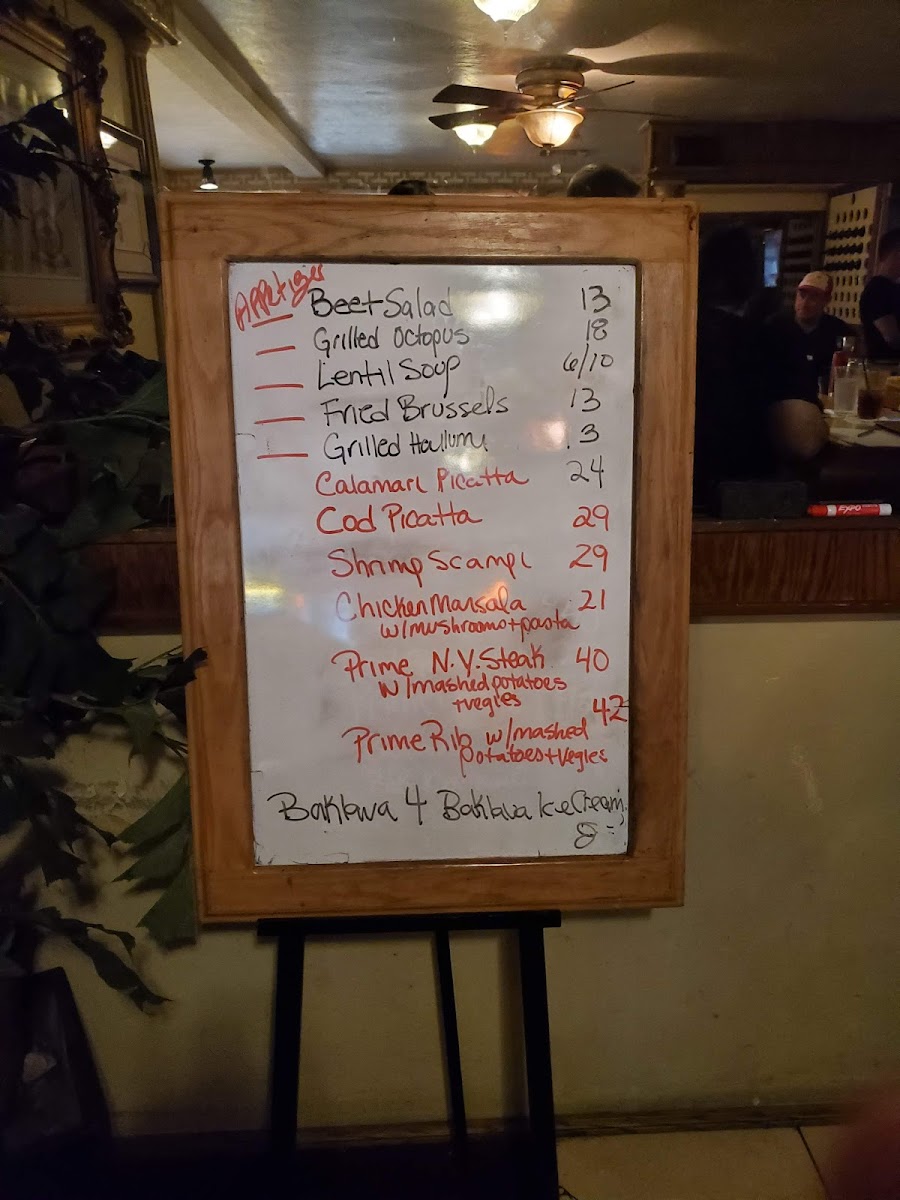 Appetizer
Beet Salad 13
Grilled Octopus 18
Lentil Soup 6/10
Fried Brussels 13
Grilled Hallumi .3
Calamari Picatta 24
Cod Picatta 29
Shrimp Scampi 29
Chicken Marsala 21
w/mushrooms + pasta
Prime N.Y. Steak 40
w/mashed potatoes
+ vegies
42
Prime Rib w/mashed
potatoes + vegies
Baklava 4 Baklava Ice Cream
8
EXPO